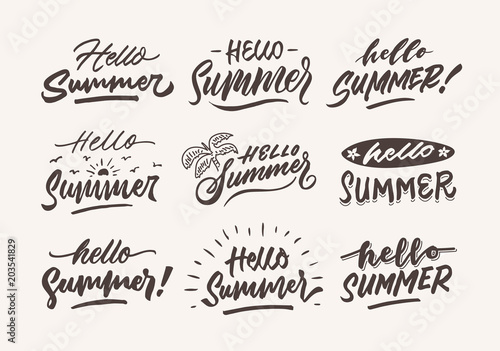 Hello
Summer
- HELLO -
Summer
hello
SUMMER!
Hello
Summer
HELLO
Summer
hello
SUMMER
hello
Summer!
Hello
Summer
hello
SUMMER
Adobe Stock | #203541829